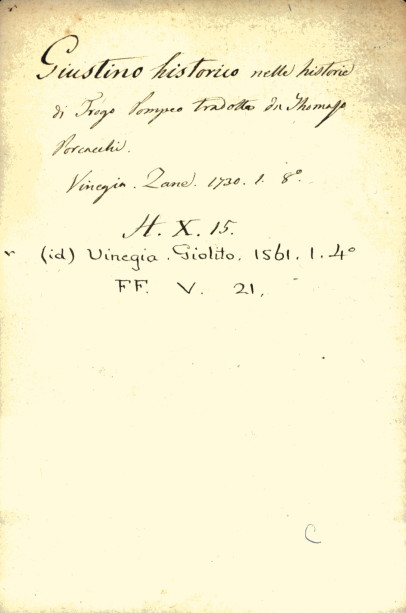 Giustino historico nelle historie
di Trogo Pompeo tradotto da Thomaso
Porcacchi.
Vinegia. Zane. 1730. 1. 8º.
H. X. 15.
(id) Vinegia. Giolito. 1561. 1. 4º
FF. V. 21.
C